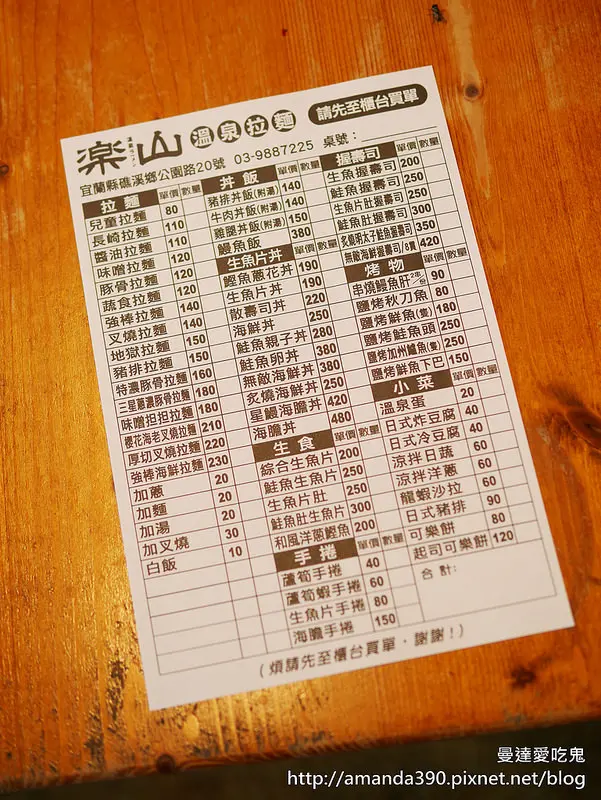 楽山 溫泉拉麵 請先至櫃台買單
宜蘭縣礁溪鄉公園路20號 03-9887225 桌號：
拉麵 單價 數量
兒童拉麵 80
長崎拉麵 110
醬油拉麵 110
味噌拉麵 120
豚骨拉麵 120
蔬食拉麵 120
強棒拉麵 140
叉燒拉麵 140
地獄拉麵 150
豬排拉麵 150
特濃豚骨拉麵 160
三星蔥濃豚骨拉麵 180
味噌担担拉麵 180
櫻花海老叉燒拉麵 210
厚切叉燒拉麵 220
強棒海鮮拉麵 230
加蔥 20
加麵 20
加湯 20
加叉燒 30
白飯 10
丼飯 單價 數量
豬排丼飯(附湯) 140
牛肉丼飯(附湯) 140
雞腿丼飯(附湯) 150
鰻魚飯 380
生魚片丼 單價 數量
鰹魚蔥花丼 190
生魚片丼 190
散壽司丼 220
海鮮丼 250
鮭魚親子丼 280
鮭魚卵丼 380
無敵海鮮丼 380
炙燒海鮮丼 250
星鰻海膽丼 420
海膽丼 480
生食 單價 數量
綜合生魚片 200
鮭魚生魚片 250
生魚片肚 250
鮭魚肚生魚片 300
和風洋蔥鰹魚 200
手捲 單價 數量
蘆筍手捲 40
蘆筍蝦手捲 60
生魚片手捲 80
海膽手捲 150
握壽司 單價 數量
生魚握壽司 200
鮭魚握壽司 250
生魚片肚握壽司 250
鮭魚肚握壽司 300
炙燒明太子鮭魚握壽司 350
無敵海鮮握壽司8貫 420
烤物 單價 數量
串燒鰻魚肝 90
鹽烤秋刀魚 80
鹽烤鮮魚(隻) 250
鹽烤鮭魚頭 250
鹽烤加州鱸魚(隻) 250
鹽烤鮮魚下巴 150
小菜 單價 數量
溫泉蛋 20
日式炸豆腐 40
日式冷豆腐 40
涼拌日蔬 60
涼拌洋蔥 60
龍蝦沙拉 60
日式豬排 90
可樂餅 80
起司可樂餅 120
合計:
(煩請先至櫃台買單，謝謝！)
曼達愛吃鬼
http://amanda390.pixnet.net/blog